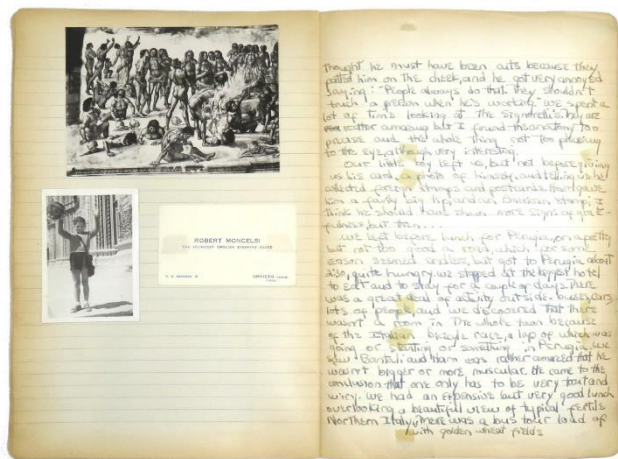 ROBERT MONCELSI
THE YOUNGEST ENGLISH SPEAKING GUIDE
ORVIETO
thought he must have been cute because they
patted him on the cheek, and he got very annoyed
saying: "People always do that, they shouldn't
touch a person when he's working." We spent a
lot of time looking at the Signorellis. They are
rather amazing but I found this anatomy too
precise and the whole thing not too pleasing
to the eye, although very interesting.
Our little boy left us, but not before giving
us his card, a photo of himself, and telling us he
collected foreign stamps and postcards. Ham gave
him a fairly big tip, and an American stamp. I
think he should have shown more signs of grate-
fulness, but then...
We left before lunch, for Perugia, on a pretty
but not too good a road, which for some
reason seemed endless, but got to Perugia about
quite hungry. We stopped at the biggest hotel
to eat and to stay for a couple of days. There
was a great deal of activity outside: buses, cars
lots of people, and we discovered that there
wasn't a room in the whole town because
of the Italian bicycle race, a lap of which was
going or starting or something in Perugia. We
saw and Ham was rather amazed that he
wasn't bigger or more muscular. He came to the
conclusion that one only has to be very taut and
wiry. We had an expensive but very good lunch
overlooking a beautiful view of typical fertile
Northern Italy. There was a bus tour load of
with golden wheat fields